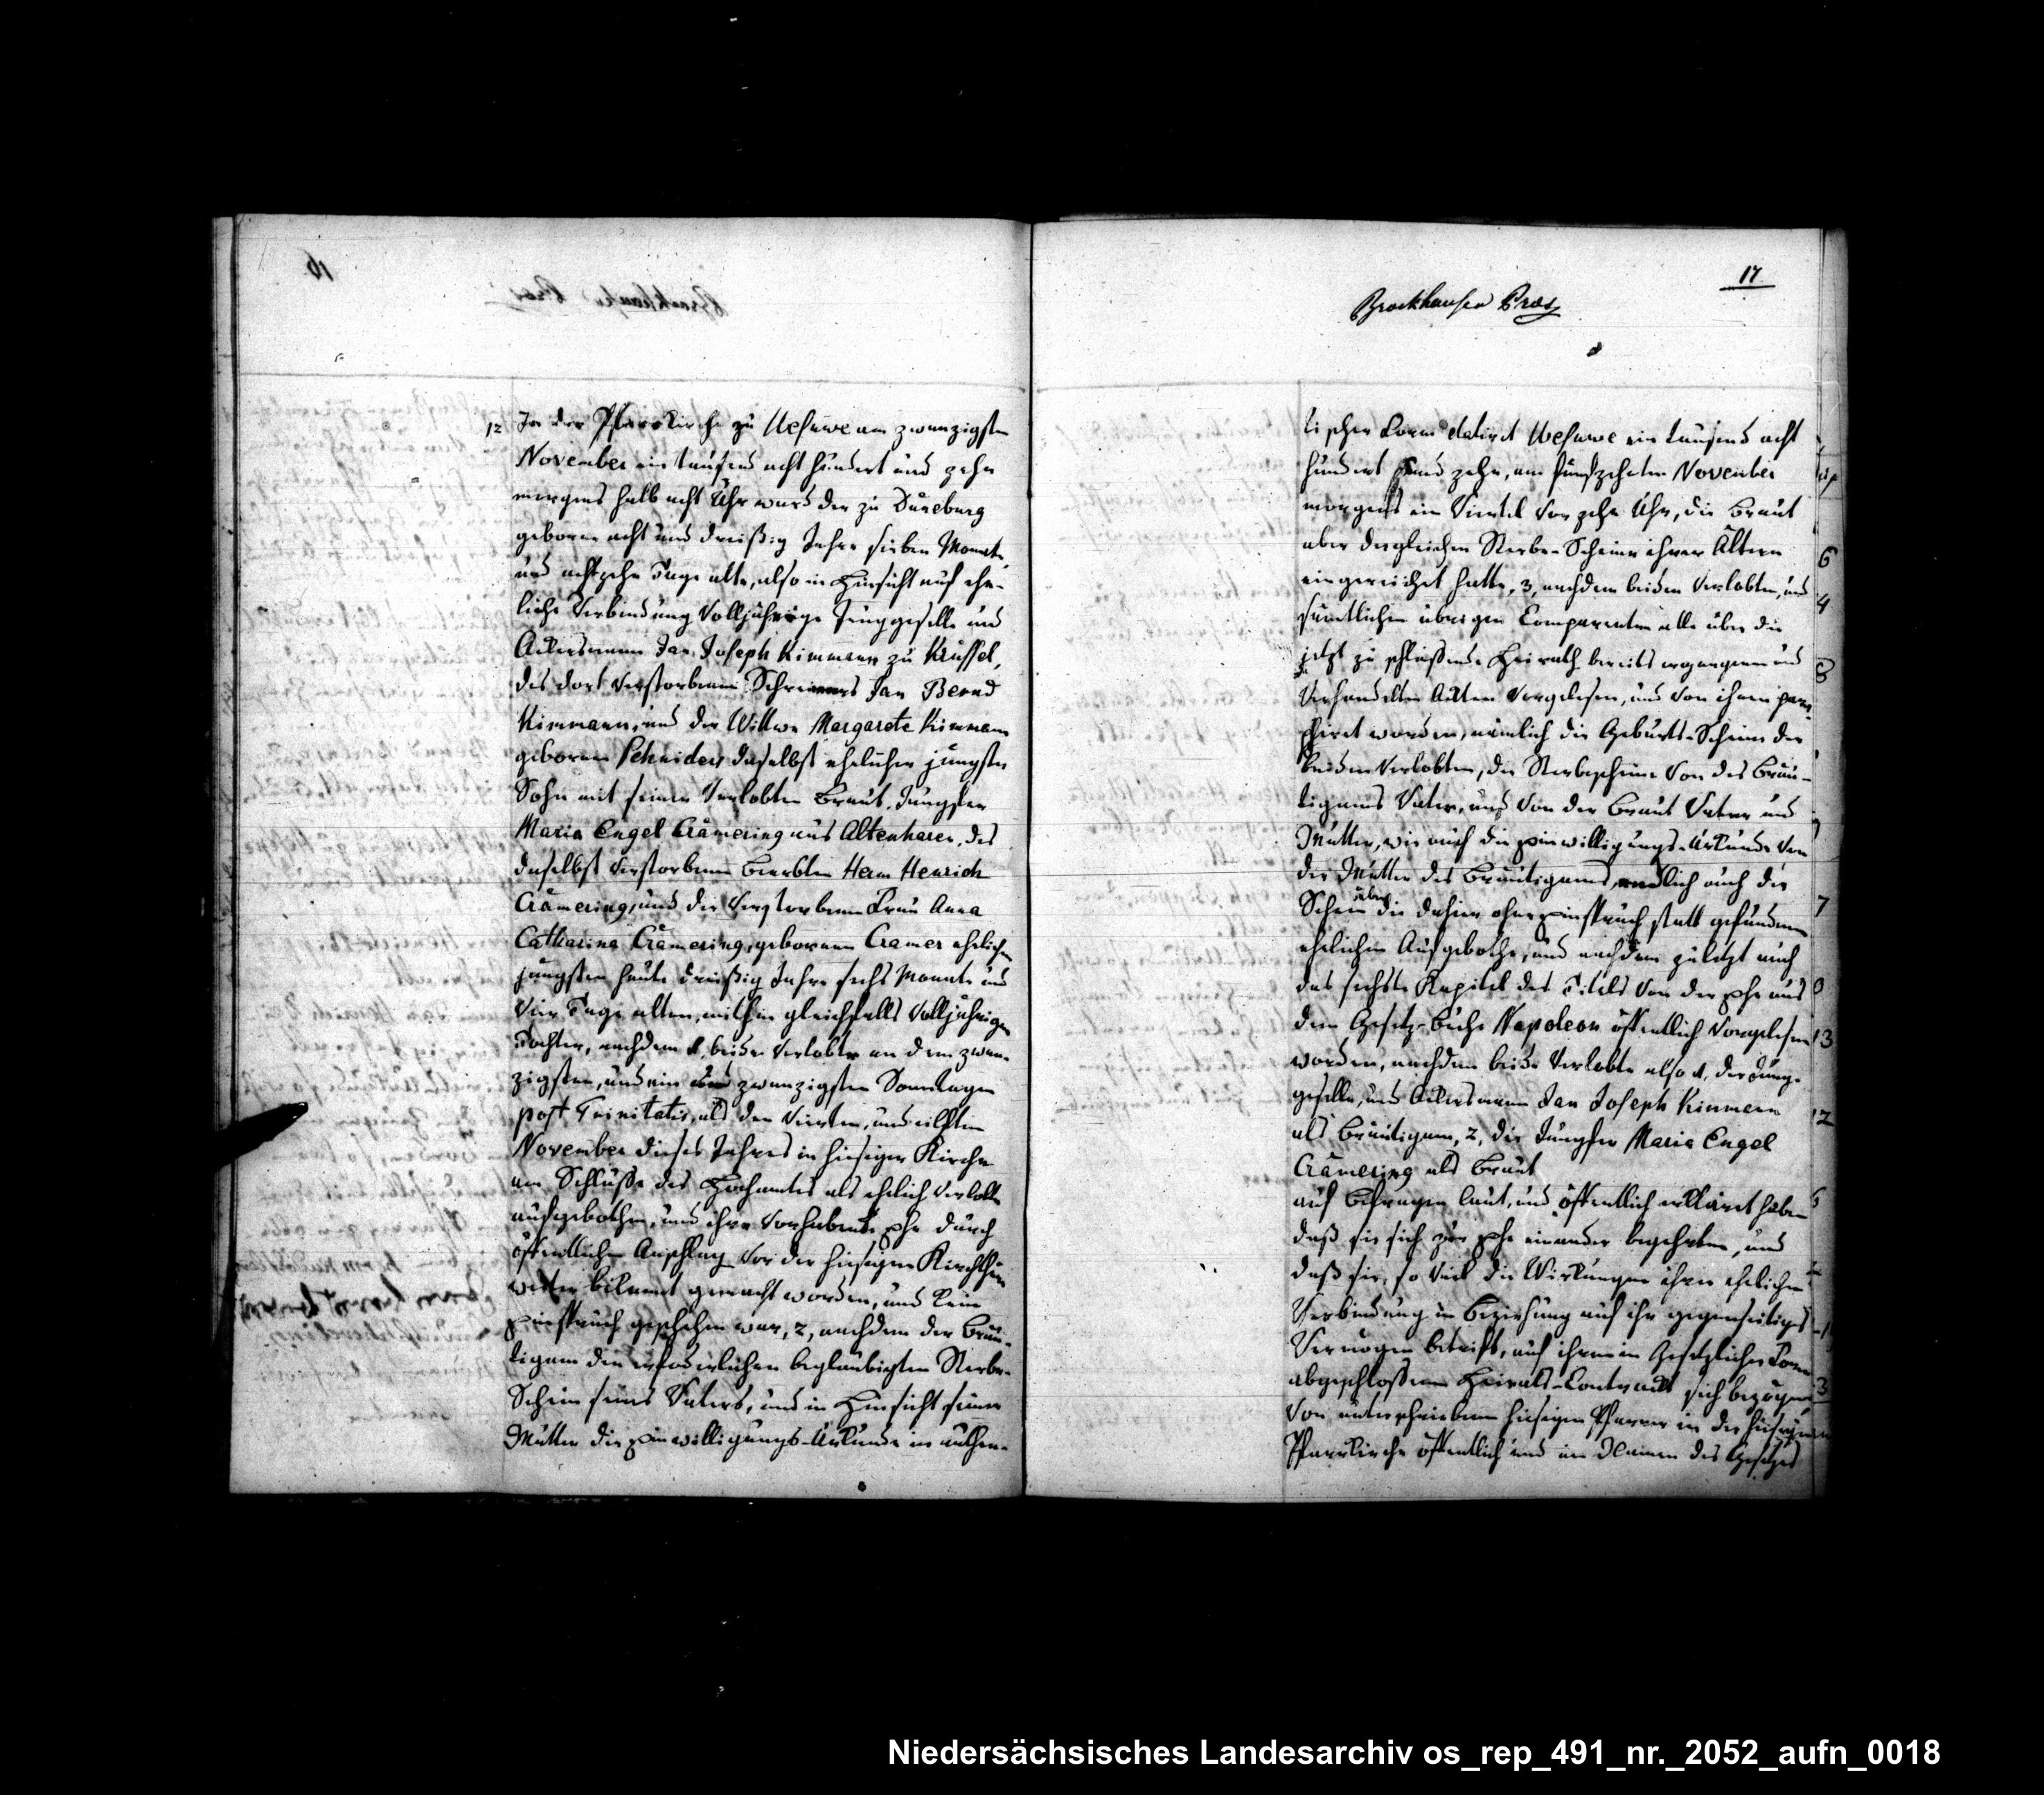 12 In der Pfarrkirche zu Wesuwe am zwanzigsten
November ein tausend acht hundert und zehn
morgens halb acht Uhr ward der zu Düneburg
geborne acht und dreißig Jahre sieben Monate,
und achtzehn Tage alte, also in Hinsicht auf ehe-
liche Verbindung volljährige Junggeselle und
Ackersmann Jan Joseph Kimmann zu Krüssel,
des dort verstorbenen Schreiners Jan Bernd
Kimmann, und der Wittwe Margarete Kimmann
gebornen Schniders daselbst ehelicher jüngster
Sohn mit seiner Verlobten Braut, Jungfer
Maria Engel Crämering aus Altenharen, des
daselbst verstorbenen Beerbten Herm Henrich
Crämering, und der verstorbenen Frau Anna
Catharina Crämering, gebornen Cramer ehelichen
jüngsten heute dreißig Jahre sechs Monate und
vier Tage alten, mithin gleichfalls volljährigen
Tochter, nachdem 1, beide Verlobte an dem zwan-
zigsten, und ein und zwanzigsten Sonntagen
post Trinitatis, als den vierten, und eilften
November dieses Jahres in hiesiger Kirche
am Schluße des Hochamtes als ehelich Verlobte
aufgebothen, und ihre vorhabende Ehe durch
öffentlichen Anschlag vor der hiesigen Kirchthür
weiter bekannt gemacht worden, und kein
Einspruch geschehen war, 2, nachdem der Bräu-
tigam den erfoderlichen beglaubigten Sterbe-
Schein seines Vaters, und in Hinsicht seiner
Mutter die Einwilligungs-Urkunde in authen-
17
Brockhausen Præs
tischer Form datirt Wesuwe ein tausend acht
hundert und zehn, am fünfzehnten November
morgens ein Viertel vor zehn Uhr, die Braut
aber dergleichen Sterbe-Scheine ihrer Ältern
eingereichet hatte, 3, nachdem beiden Verlobten, und
sämtlichen übrigen Comparenten alle über die
jetzt zu schließende Heirath bereits ergangenen und
verhandelten Akten vorgelesen, und von ihnen para-
phirt worden, nämlich die Geburts-Scheine der
beiden Verlobten, die Sterbescheine von des Bräu-
tigams Vater, und von der Braut Vater und
Mutter, wie auch die Einwilligungs-Urkunde von
der Mutter des Bräutigams, endlich auch der
Schein über die dahier ohne Einspruch statt gefundenen
ehelichen Aufgebothe, und nachdem zuletzt auch
das sechste Kapitel des Titels von der Ehe aus
dem Gesetz-Buche Napoleon öffentlich vorgelesen
worden, nachdem beide Verlobte also 1, der Jung-
geselle, und Ackersmann Jan Joseph Kimmann
als Bräutigam, 2, die Jungfer Maria Engel
Crämering als Braut
auf Befragen laut, und öffentlich erkläret haben
daß sie sich zur Ehe einander begehrten, und
daß sie, so viel die Wirkungen ihrer ehelichen
Verbindung in Beziehung auf ihr gegenseitiges
Vermögen betrift, auf ihren in Gesetzlicher Form
abgeschloßenen Heirats-Contrackt sich bezögen
von unterschriebenen hiesigen Pfarrer in der hiesigen
Pfarrkirche öffentlich und im Namen des Gesetzes
Niedersächsisches Landesarchiv os_rep_491_nr._2052_aufn_0018